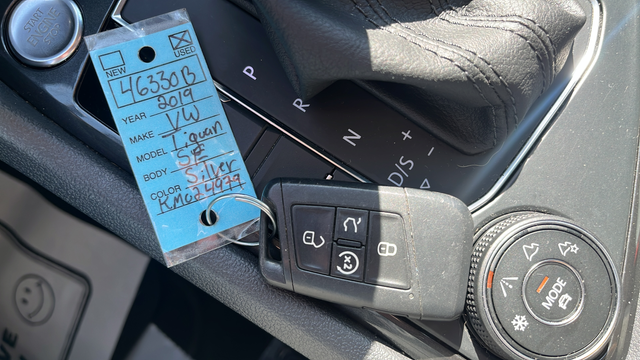 START
NEW
USED
46330B
YEAR 2019
MAKE VW
MODEL Tiguan
BODY SE
COLOR Silver
KM024977
P
R
N
D/S
+
-
x2
MODE